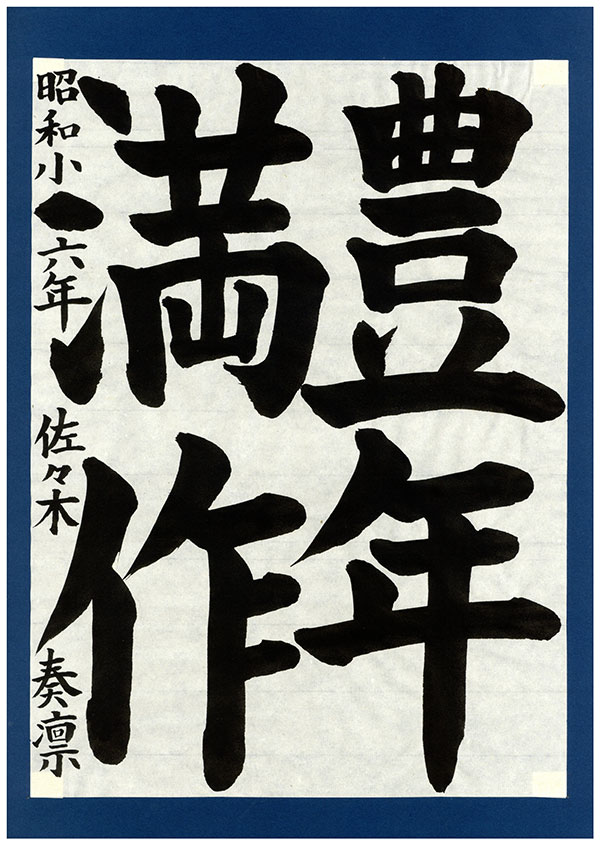 豊年
満作
昭和小 六年 佐々木 奏凛